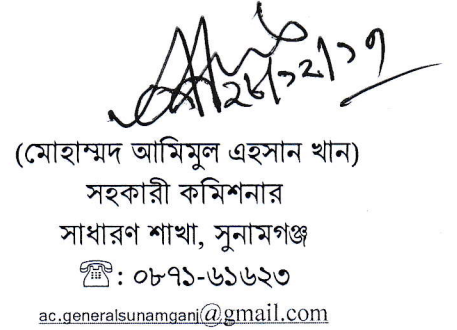 ২৮/১২/১৭
(মোহাম্মদ আমিমুল এহসান খান)
সহকারী কমিশনার
সাধারণ শাখা, সুনামগঞ্জ
☎: ০৮৭১-৬১৬২৩
ac.generalsunamganj@gmail.com